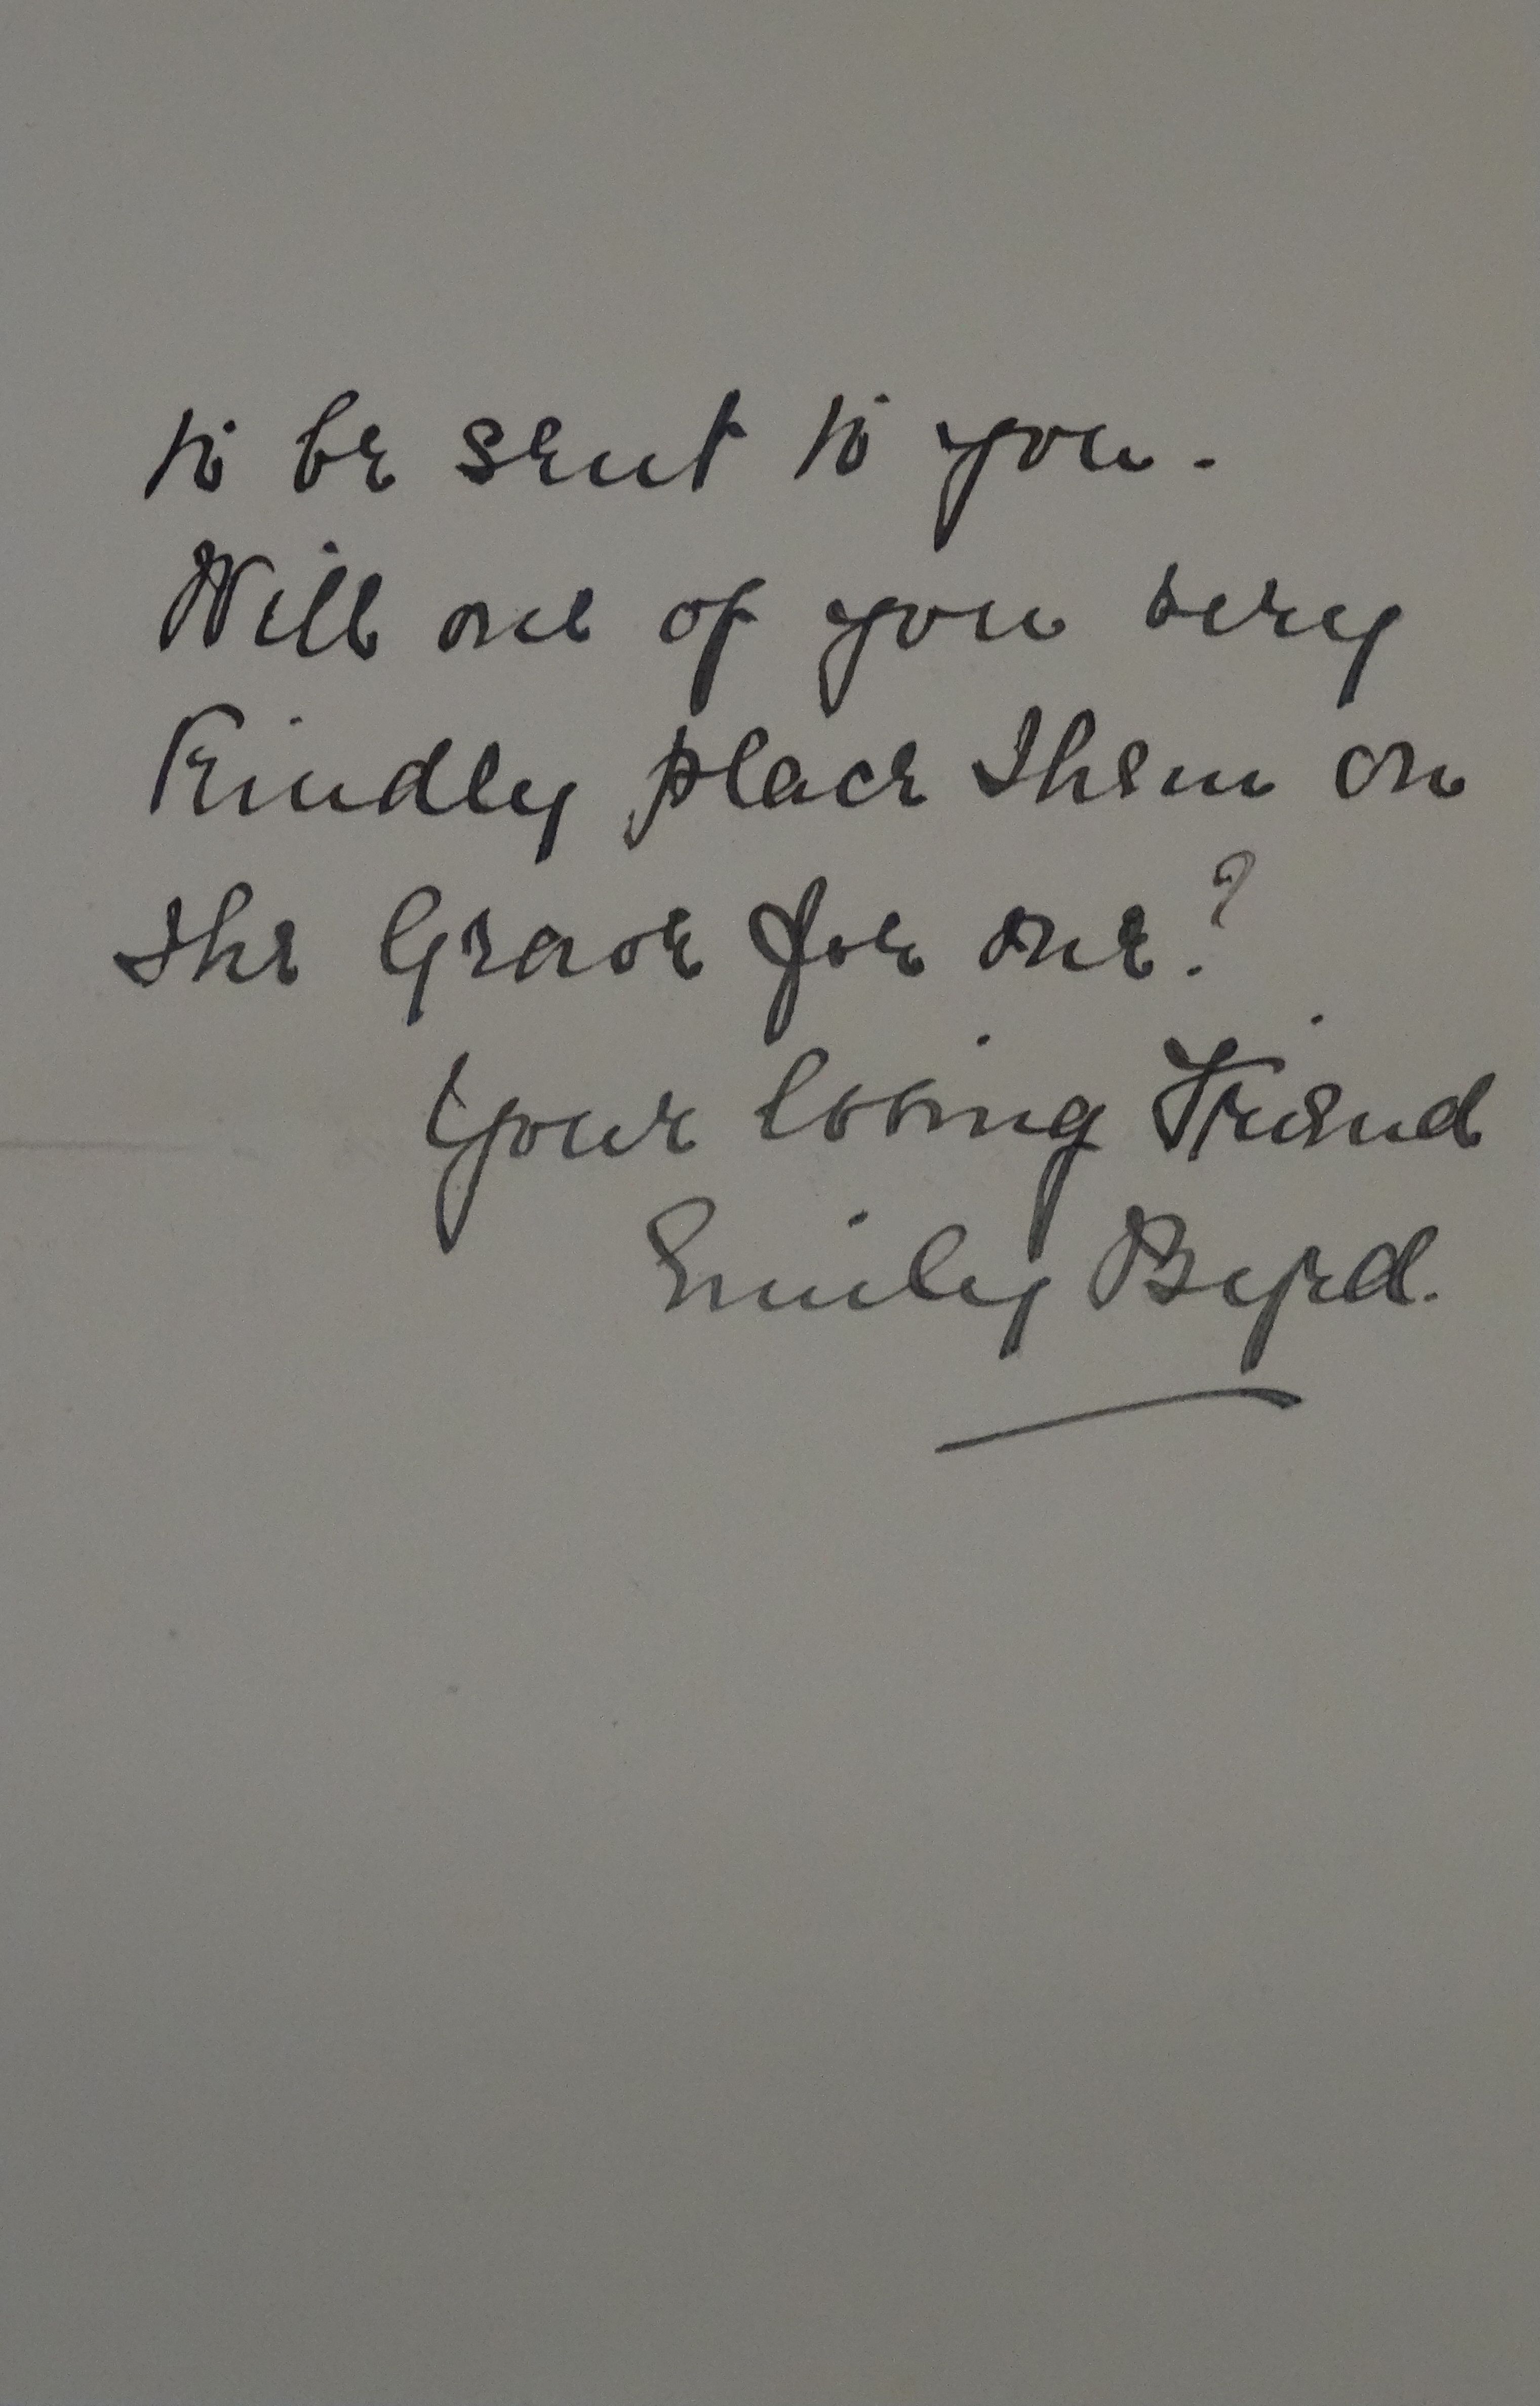 to be sent to you.
Will one of you very
Kindly place them on
the Grave for me?
Your loving Friend
Emily Byrd.